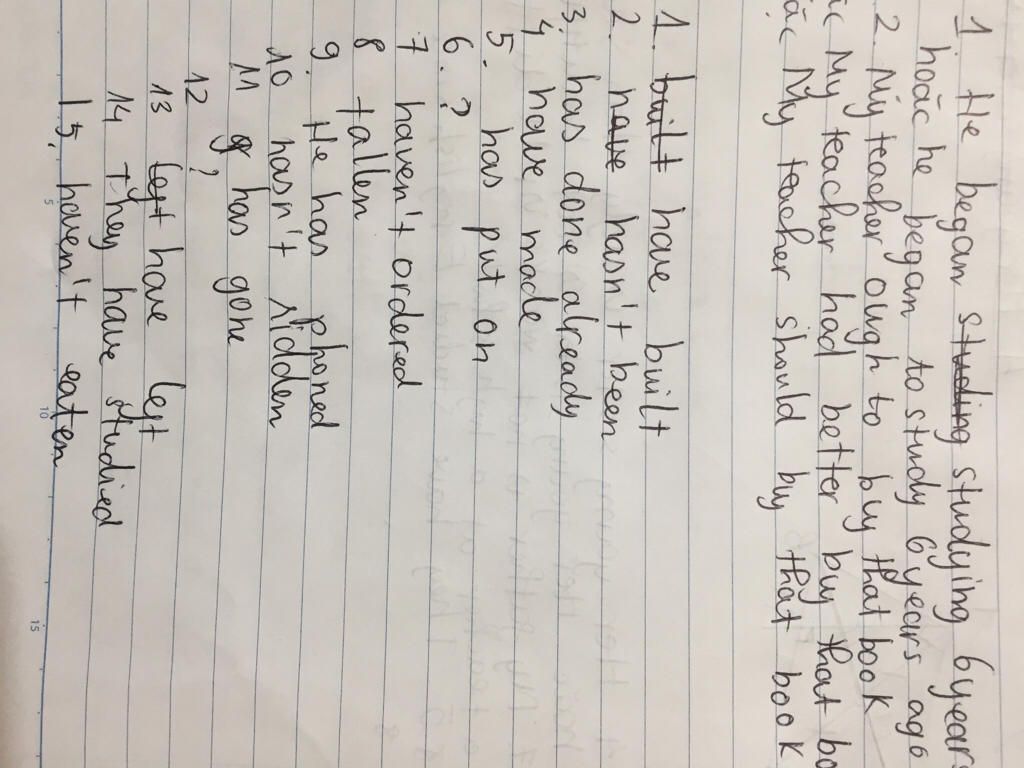 1. He began studing studying 6 years
hoặc he began to study 6 years ago
2. My teacher ough to by that book
ặc My teacher had better buy that bo
ặc My teacher should by that book
1. built have built
2. have hasn't been
3. has done already
4 have made
5. has put on
6. ?
7 haven't ordered
8 fallen
9. He has phoned
10 hasn't ridden
11 g has gone
12 ?
13 left have left
14 They have studied
15. haven't eaten
5
10
15